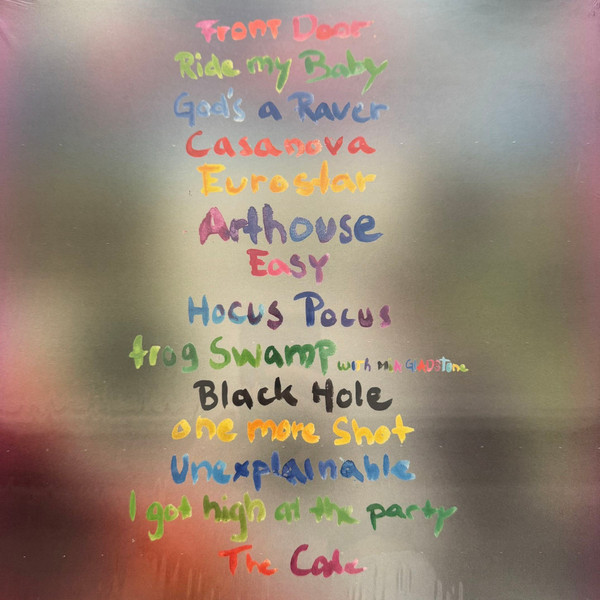 Front Door
Ride my Baby
God's a Raver
Casanova
Eurostar
Arthouse
Easy
Hocus Pocus
frog Swamp with Mia GLADSTone
Black Hole
one more Shot
Unexplainable
I got high at the party
The Code